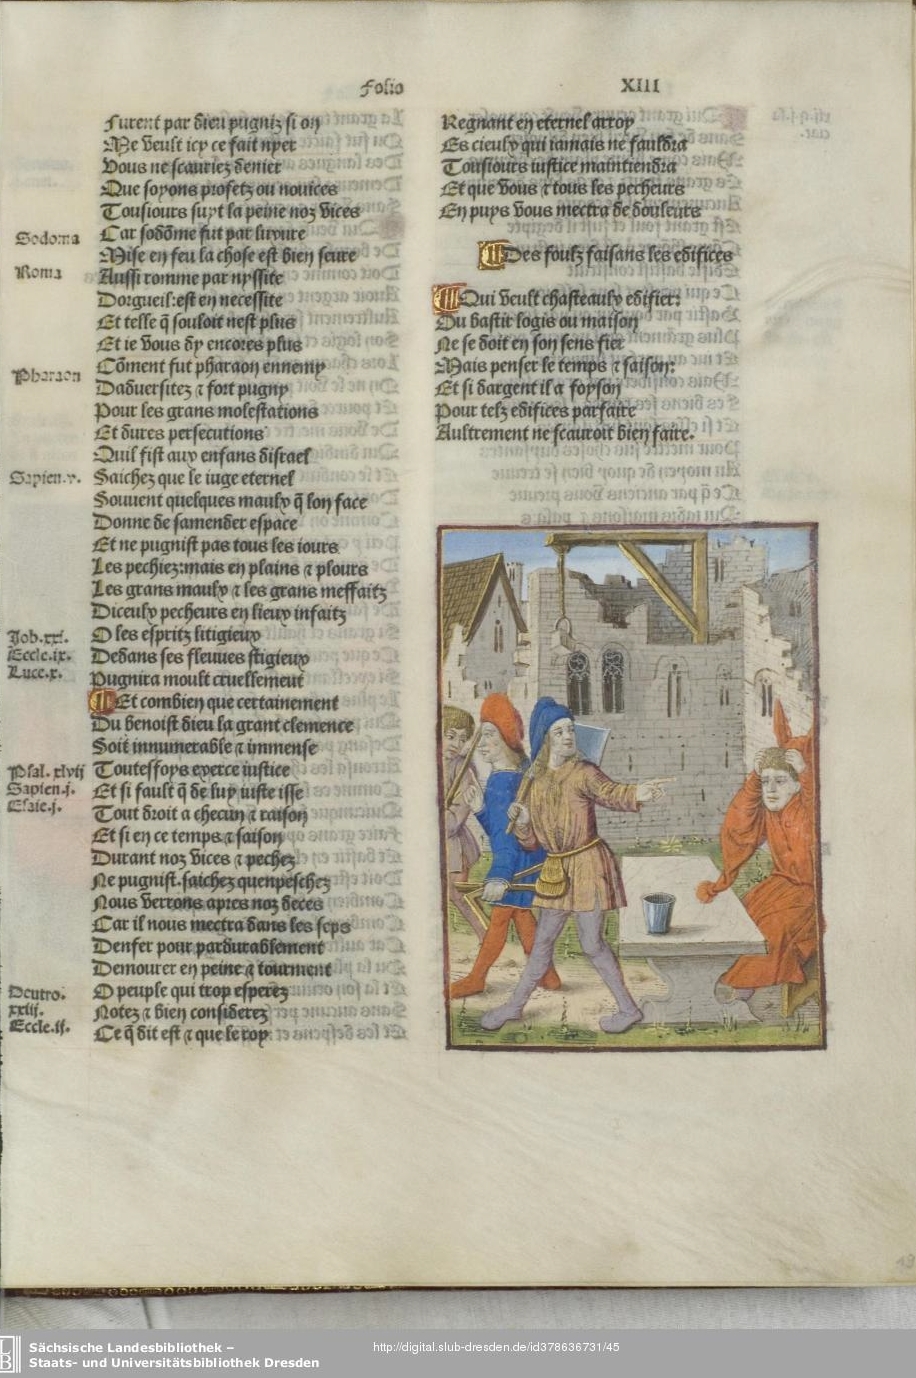 Folio XIII
Furent par dieu pugniz si on
Me veult icy ce fait nyer
Vous ne scauriez denier
Que soyons profetz ou nouices
Tousiours suyt la peine noz vices
Sodoma
Car sodõme fut par luxure
Mise en feu la chose est bien seure
Roma
Aussi romme par nyssite
Dorgueil:est en necessite
Et telle q̃ souloit nest plus
Et ie vous dy encores plus
Cõment fut pharaon ennemy
Pharaon
Daduersitez ⁊ fort pugny
Pour les grans molestations
Et dures persecutions
Quil fist aux enfans disrael
Sapien.v.
Saichez que le iuge eternel
Souuent quelques maulx q̃ lon face
Donne de samender espace
Et ne pugnist pas tous les iours
Les pechiez:mais en plains ⁊ plours
Les grans maulx ⁊ les grans meffaitz
Diceulx pecheurs en lieux infaitz
Job.xxi.
O les espritz litigieux
Eccle.ix.
Dedans ses fleuues stigieux
Luce.x.
Pugnira moult cruellement
Et combien que certainement
Du benoist dieu la grant clemence
Soit innumerable ⁊ immense
Psal. xlvij
Toutesfoys exerce iustice
Sapien.j.
Et si fault q̃ de luy iuste isse
Esaie.j.
Tout droit a checun ⁊ raison
Et si en ce temps ⁊ saison
Durant noz vices ⁊ pechez
Ne pugnist.saichez quenpeschez
Nous verrons apres noz deces
Car il nous mectra dans les seps
Denfer pour pardurablement
Demourer en peine ⁊ tourment
Deutro.
O peuple qui trop esperez
xxiij.
Notez ⁊ bien considerez
Eccle.ij.
Ce q̃ dit est ⁊ que le roy
Regnant en eternel arroy
Es cieulx qui iamais ne fauldra
Tousiours iustice maintiendra
Et que vous ⁊ tous les pecheurs
En puys vous mectra de douleurs
Des foulz faisans les edifices
Qui veult chasteaulx edifier:
Ou bastir logis ou maison
Ne se doit en son sens fier
Mais penser le temps ⁊ saison:
Et si dargent il a foyson
Pour telz edifices parfaire
Aultrement ne scauroit bien faire.
Sächsische Landesbibliothek –
Staats- und Universitätsbibliothek Dresden
http://digital.slub-dresden.de/id378636731/45